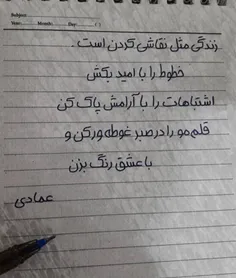 Subject:
Year: Month: Day:
زندگی مثل نقاشی کردن است.
خطوط را با امید بکش
اشتباهات را با آرامش پاک کن
قلم مو را در صبر غوطه ور کن و
با عشق رنگ بزن
عمادی